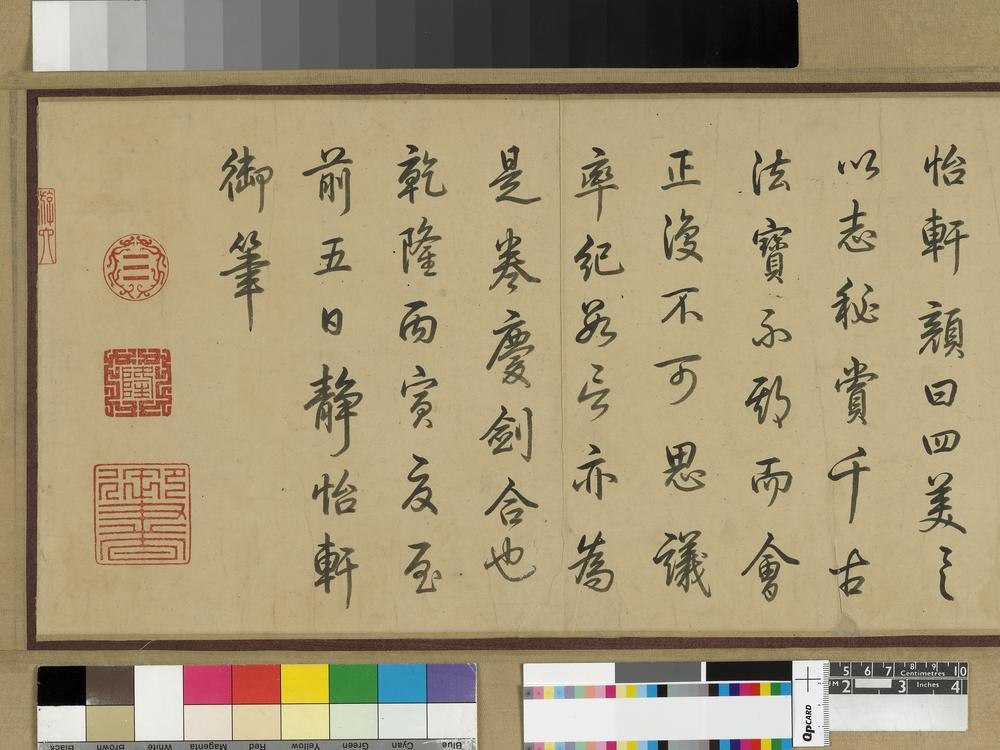 怡軒顏曰四美具
以志秘賞千古
法寶不脛而會
正復不可思議
率紀數言亦為
是卷慶劍合也
乾隆丙寅夏至
前五日靜怡軒
御筆
乾隆
Blue Cyan Green Yellow Red Magenta White Brown Black
QpCARD
5 6 7 8 9 10
Centimetres
2 3 Inches 4